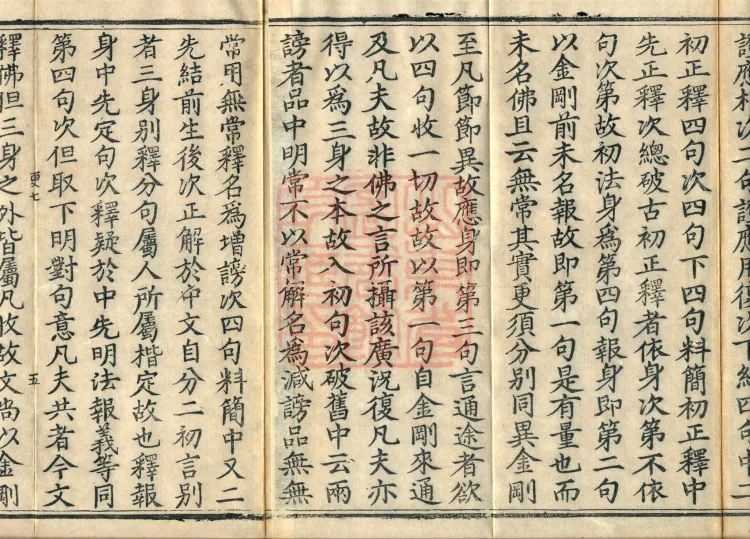 謗應杉次二句謗應用復次下結四句中二
初正釋四句次四句下四句料簡初正釋中
先正釋次總破古初正釋者依身次第不依
句次第故初法身為第四句報身即第二句
以金剛前未名報故即第一句是有量也而
未名佛且云無常其實更須分別同異金剛
至凡節節異故應身即第三句言通途者欲
以四句收一切故故以第一句自金剛來通
及凡夫故非佛之言所攝該廣況復凡夫亦
得以為三身之本故入初句次破舊中云兩
謗者品中明常不以常解名為減謗品無無
常用無常釋名為增謗次四句料簡中又二
先結前生後次正解於中文自分二初言別
者三身別釋分句屬人所屬揩定故也釋報
身中先定句次釋疑於中先明法報義等同
第四句次但取下明對句意凡夫共者今文
更七
五
釋佛但三身之外皆屬凡收故文尚以金剛